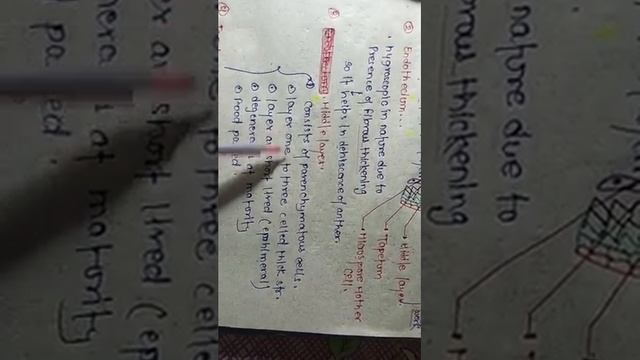 ② Endothecium...
• hygroscopic in nature due to
Presence of fibrous thickening
so it helps in dehiscence of anther.
Middle layer.
① Consists of parenchymatous cells.
② layer one to three celled thick str.
③ layer short lived (ephemeral)
④ at maturity
⑤ food
→ Middle layer
→ Tapetum
→ Microspore mother
cell.
nature due to
thickening
to three celle
short lived (ep
at maturity